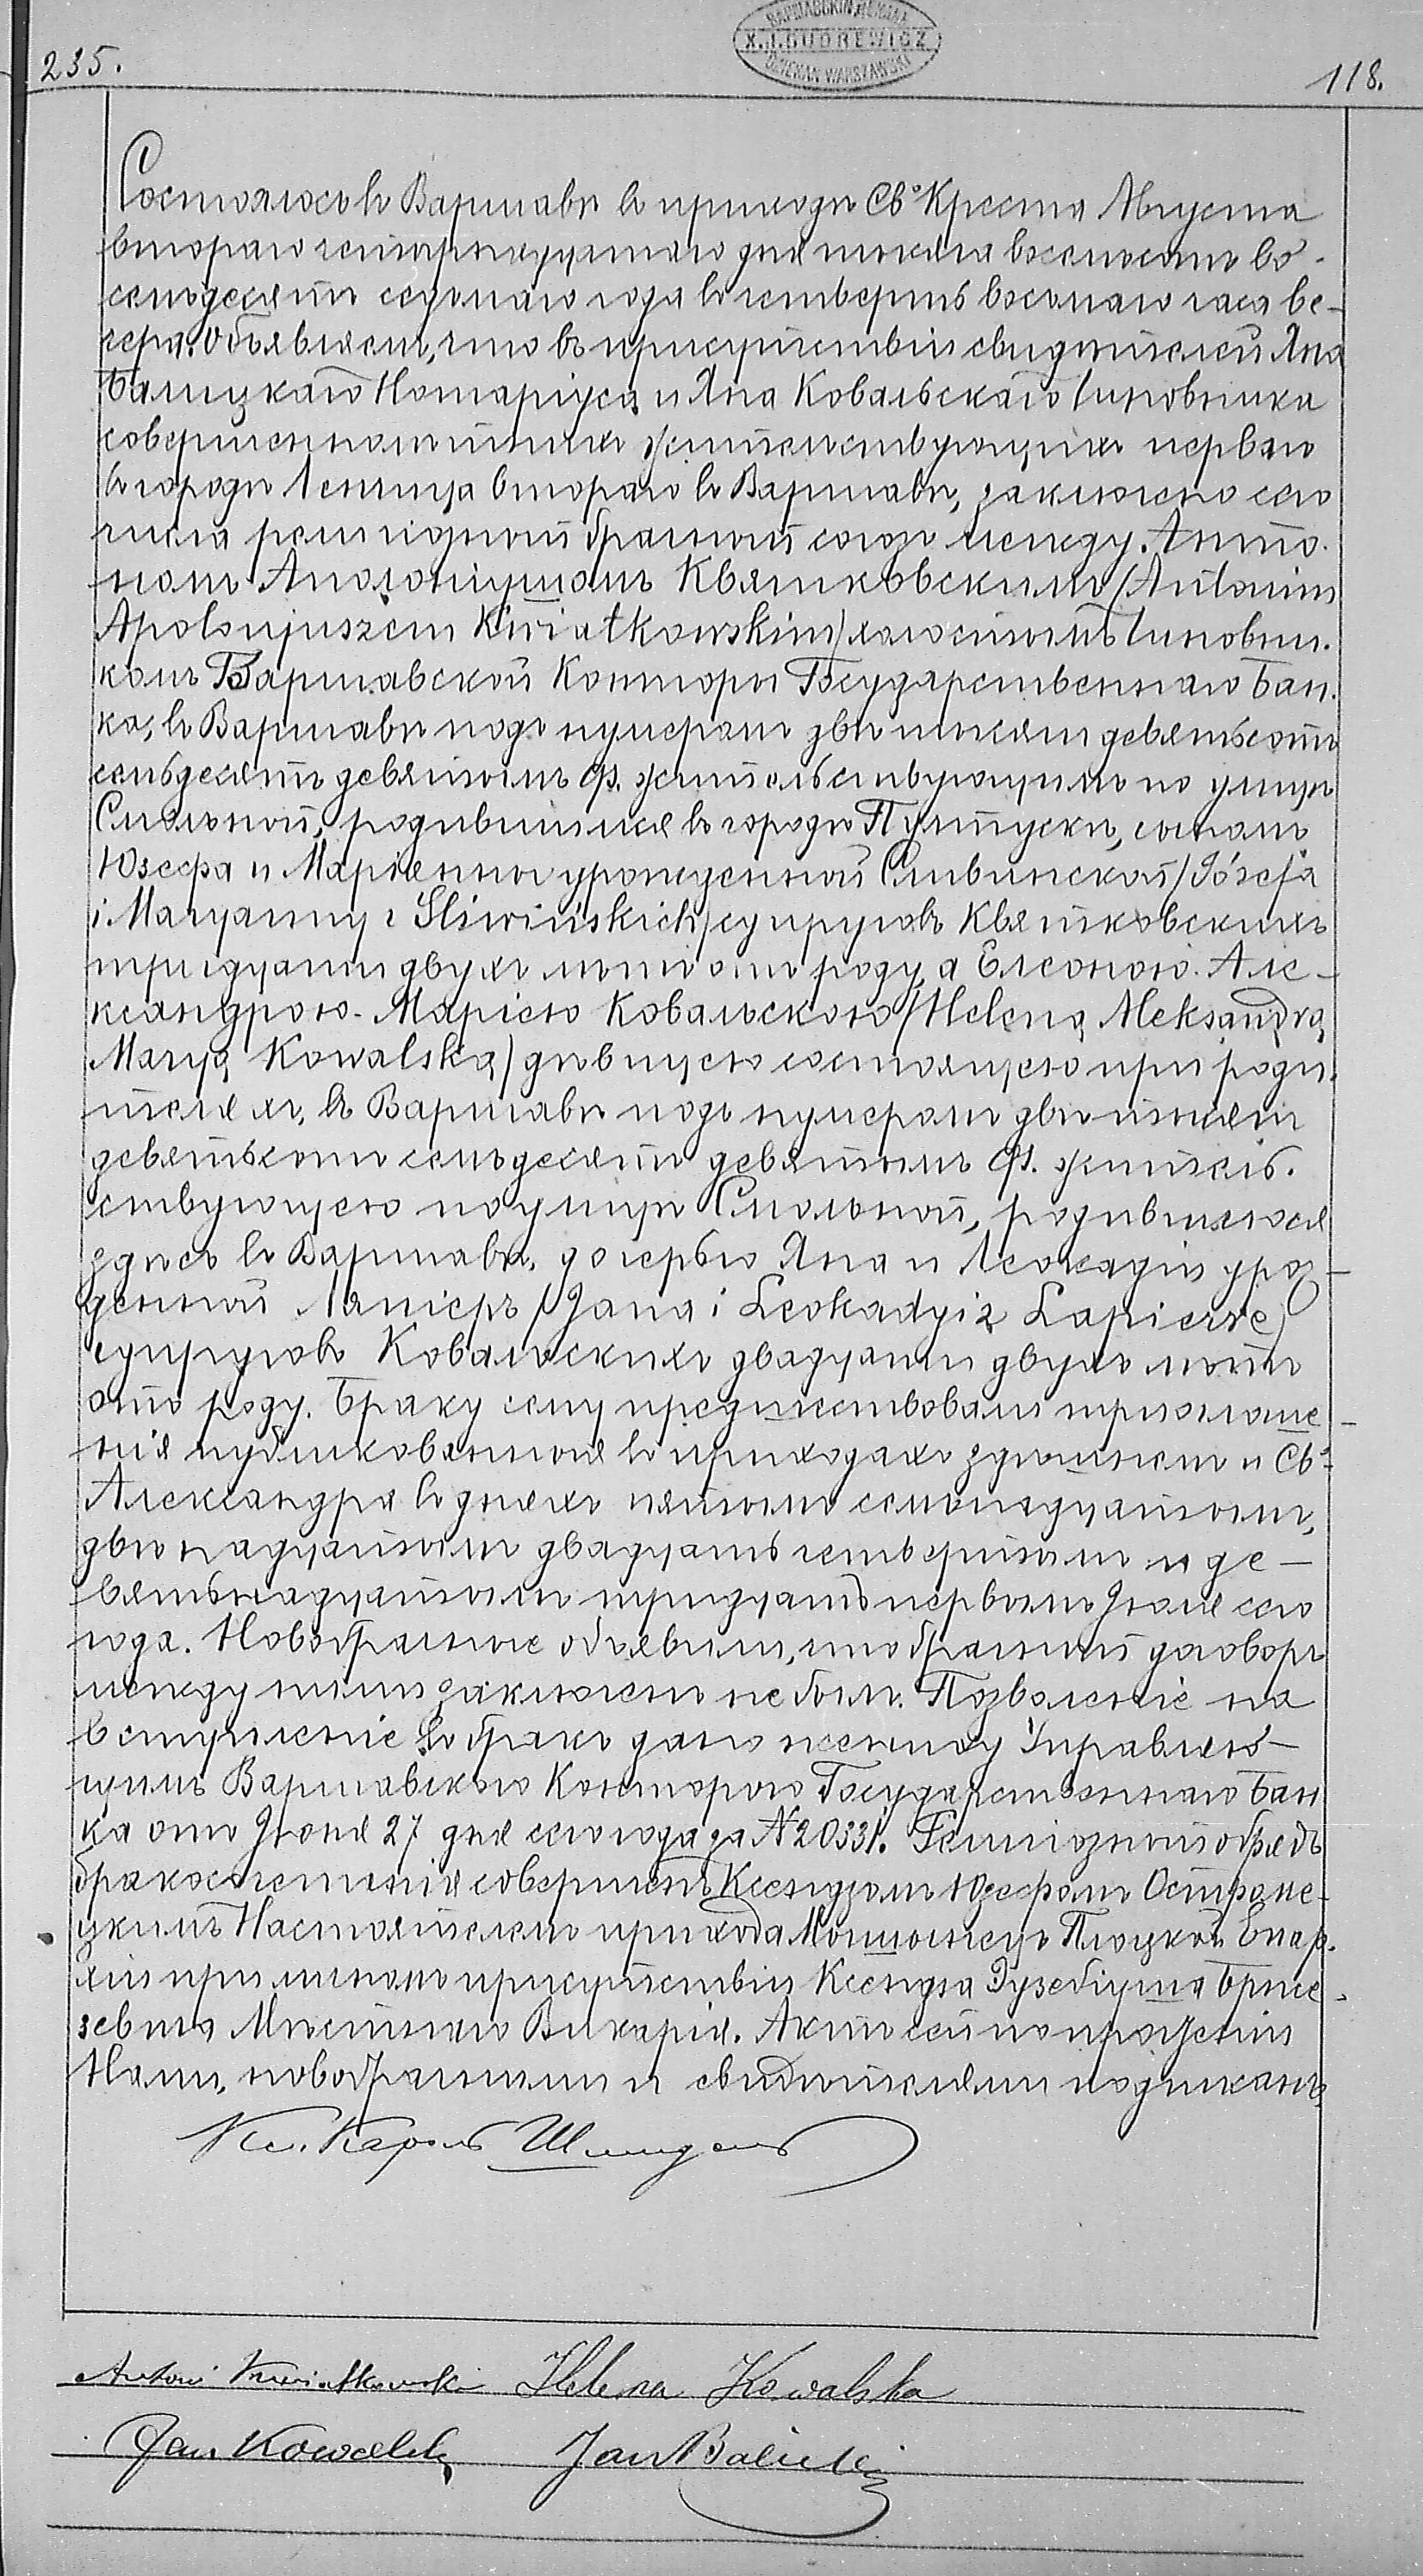 ВАРШАВСКІЙ ДЕКАНЪ
X. J. GUDREWICZ
DZIEKAN WARSZAWSKI
235.
118.
Состоялось въ Варшавѣ въ приходѣ Св. Креста Августа
втораго четырнадцатаго дня тысяча восемьсотъ во-
семьдесятъ седьмаго года въ четверть восьмаго часа ве-
чера. Объявляемъ, что въ присутствіи свидѣтелей Яна
Балицкаго Нотаріуса и Яна Ковальскаго Чиновника
совершеннолѣтнихъ жительствующихъ перваго
въ городѣ Ленчица втораго въ Варшавѣ, заключенъ сего
числа религіозный брачный союзъ между: Анто-
номъ Аполоніушомъ Квятковскимъ /Antonim
Apolonjuszem Kwiatkowskim/ холостымъ Чиновни-
комъ Варшавской Конторы Государственнаго Бан-
ка, въ Варшавѣ подъ нумеромъ двѣ тысячи девятьсотъ
семьдесятъ девятымъ ф. жительствующимъ по улицѣ
Смольной, родившимся въ городѣ Пултускѣ, сыномъ
Юзефа и Маріянны урожденной Сливинской /Józefa
i Maryanny z Śliwińskich/ супруговъ Квятковскихъ
тридцати двухъ лѣтъ отъ роду, а Еленою-Але-
ксандрою-Маріею Ковальскою /Heleną Aleksandrą
Maryą Kowalską/ дѣвицею состоящею при роди-
теляхъ, въ Варшавѣ подъ нумеромъ двѣ тысячи
девятьсотъ семьдесятъ девятымъ ф. житель-
ствующею по улицѣ Смольной, родившеюся
здѣсь въ Варшавѣ, дочерью Яна и Леокадіи урож-
денной Ляпіеръ /Jana i Leokadyi z Lapierre/
супруговъ Ковальскихъ двадцати двухъ лѣтъ
отъ роду. Браку сему предшествовали три оглаше-
нія публикованныя въ приходахъ здѣшнемъ и Св.
Александра въ дняхъ пятомъ семнадцатомъ,
двѣнадцатомъ двадцать четвертомъ и де-
вятьнадцатомъ тридцать первомъ Іюля сего
года. Новобрачные объявили, что брачный договоръ
между ними заключенъ не былъ. Позволеніе на
вступленіе въ бракъ дано жениху Управляю-
щимъ Варшавскою Конторою Государственнаго Бан
ка отъ Іюня 27 дня сего года за № 20331. Религіозный обрядъ
бракосочетанія совершенъ Ксендзомъ Юзефомъ Остроме-
цкимъ Настоятелемъ прихода Плоцкой Епар-
хіи при личномъ присутствіи Ксендза Эузебіуша Брже-
зевича Мѣстнаго Викарія. Актъ сей по прочтеніи
Нами, новобрачными и свидѣтелями подписанъ.
Кс. Кароль
Antoni Kwiatkowski Helena Kowalska
Jan Kowalski Jan Balicki